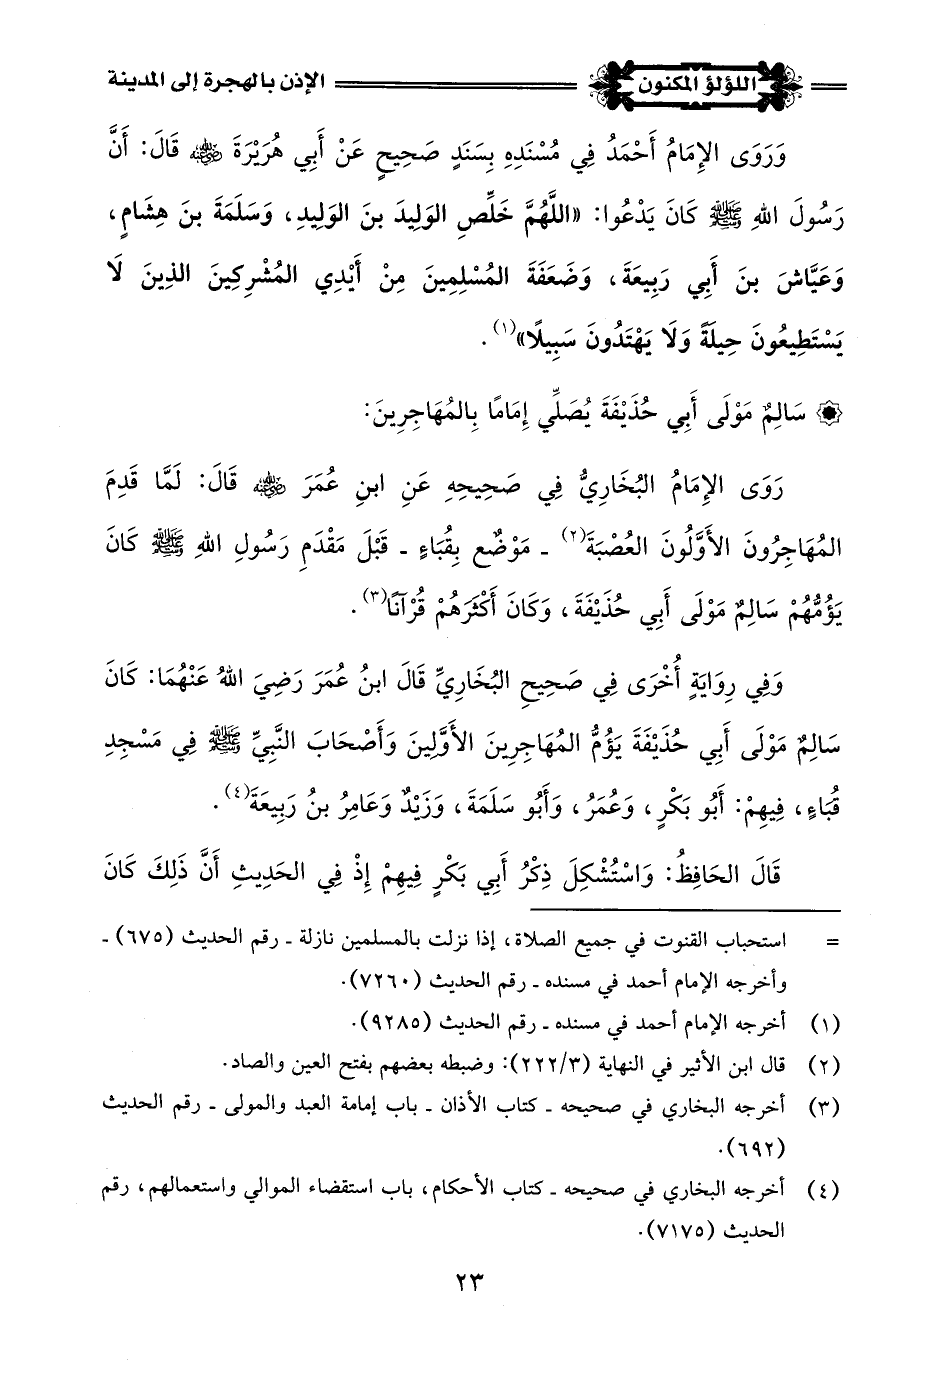 اللؤلؤ المكنون
الإذن بالهجرة إلى المدينة
وَرَوَى الإِمَامُ أَحْمَدُ فِي مُسْنَدِهِ بِسَنَدٍ صَحِيحٍ عَنْ أَبِي هُرَيْرَةَ رضي الله عنه قَالَ: أَنَّ
رَسُولَ اللهِ ﷺ كَانَ يَدْعُوا: «اللَّهُمَّ خَلِّصِ الوَلِيدَ بنَ الوَلِيدِ، وَسَلَمَةَ بنَ هِشَامٍ،
وَعَيَّاشَ بنَ أَبِي رَبِيعَةَ، وَضَعَفَةَ المُسْلِمِينَ مِنْ أَيْدِي المُشْرِكِينَ الذِينَ لَا
يَسْتَطِيعُونَ حِيلَةً وَلَا يَهْتَدُونَ سَبِيلًا»(١).
سَالِمٌ مَوْلَى أَبِي حُذَيْفَةَ يُصَلِّي إِمَامًا بِالمُهَاجِرِينَ:
رَوَى الإِمَامُ البُخَارِيُّ فِي صَحِيحِهِ عَنِ ابنِ عُمَرَ رضي الله عنه قَالَ: لَمَّا قَدِمَ
المُهَاجِرُونَ الأَوَّلُونَ العُصْبَةَ(٢) ـ مَوْضْع بِقُبَاءٍ ـ قَبْلَ مَقْدَمِ رَسُولِ اللهِ ﷺ كَانَ
يَؤُمُّهُمْ سَالِمٌ مَوْلَى أَبِي حُذَيْفَةَ، وَكَانَ أَكْثَرَهُمْ قُرْآنًا(٣).
وَفِي رِوَايَةٍ أُخْرَى فِي صَحِيحِ البُخَارِيِّ قَالَ ابنُ عُمَرَ رَضِيَ اللهُ عَنْهُمَا: كَانَ
سَالِمٌ مَوْلَى أَبِي حُذَيْفَةَ يَؤُمُّ المُهَاجِرِينَ الأَوَّلِينَ وَأَصْحَابَ النَّبِيِّ ﷺ فِي مَسْجِدِ
قُبَاءٍ، فِيهِمْ: أَبُو بَكْرٍ، وَعُمَرُ، وَأَبُو سَلَمَةَ، وَزَيْدٌ وَعَامِرُ بنُ رَبِيعَةَ(٤).
قَالَ الحَافِظُ: وَاسْتُشْكِلَ ذِكْرُ أَبِي بَكْرٍ فِيهِمْ إِذْ فِي الحَدِيثِ أَنَّ ذَلِكَ كَانَ
= استحباب القنوت في جميع الصلاة، إذا نزلت بالمسلمين نازلة ـ رقم الحديث (٦٧٥) ـ
وأخرجه الإمام أحمد في مسنده ـ رقم الحديث (٧٢٦٠).
(١) أخرجه الإمام أحمد في مسنده ـ رقم الحديث (٩٢٨٥).
(٢) قال ابن الأثير في النهاية (٢٢٢/٣): وضبطه بعضهم بفتح العين والصاد.
(٣) أخرجه البخاري في صحيحه ـ كتاب الأذان ـ باب إمامة العبد والمولى ـ رقم الحديث
(٦٩٢).
(٤) أخرجه البخاري في صحيحه ـ كتاب الأحكام، باب استقضاء الموالي واستعمالهم، رقم
الحديث (٧١٧٥).
٢٣